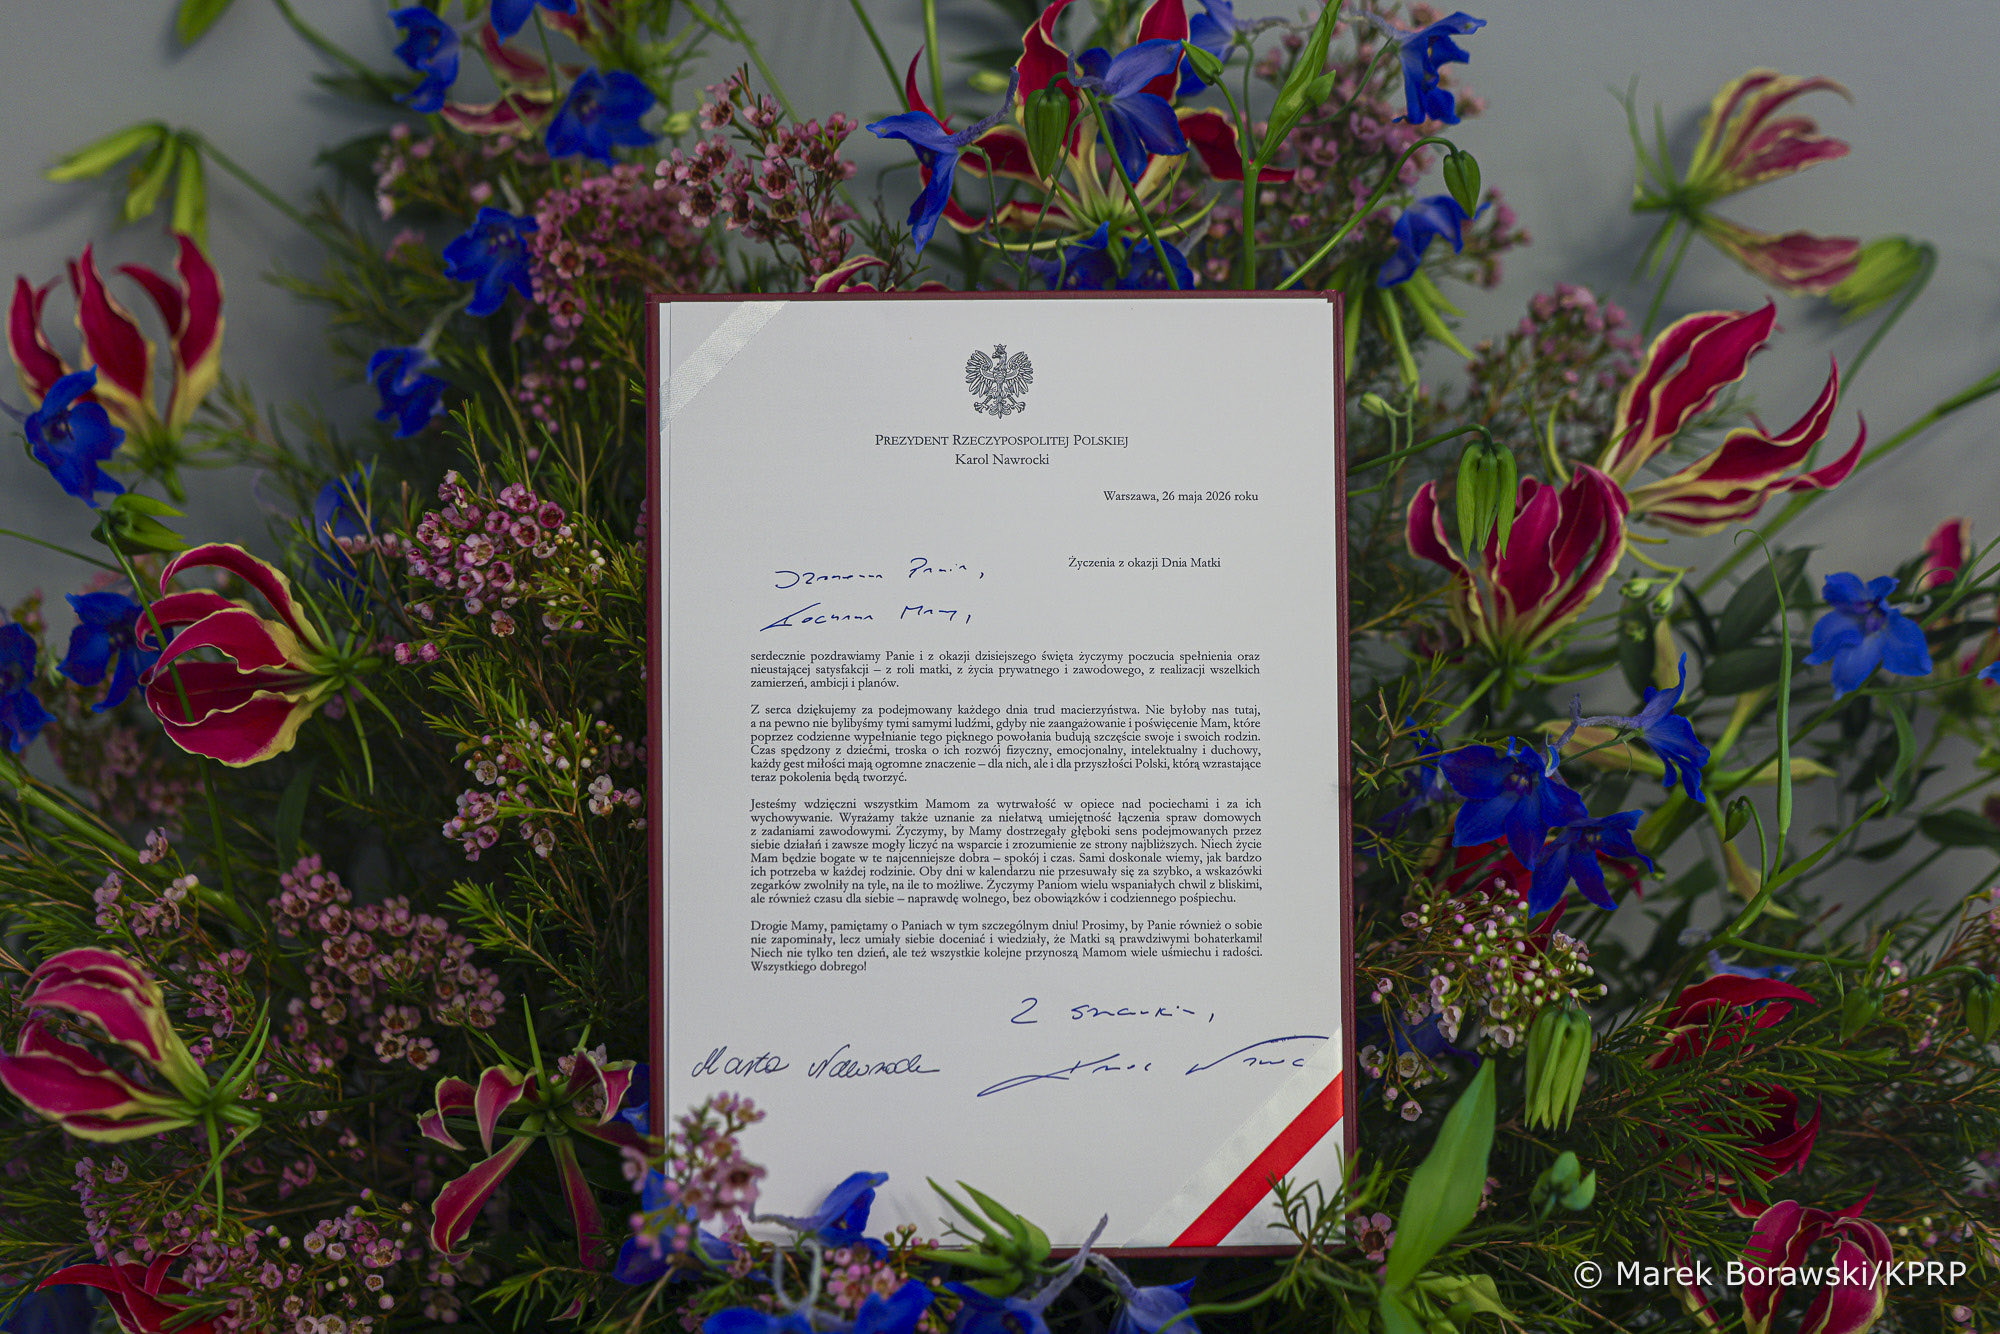 PREZYDENT RZECZYPOSPOLITEJ POLSKIEJ
Karol Nawrocki
Warszawa, 26 maja 2026 roku
Życzenia z okazji Dnia Matki
Szanowne Panie,
Kochane Mamy,
serdecznie pozdrawiamy Panie i z okazji dzisiejszego święta życzymy poczucia spełnienia oraz
nieustającej satysfakcji – z roli matki, z życia prywatnego i zawodowego, z realizacji wszelkich
zamierzeń, ambicji i planów.
Z serca dziękujemy za podejmowany każdego dnia trud macierzyństwa. Nie byłoby nas tutaj,
a na pewno nie bylibyśmy tymi samymi ludźmi, gdyby nie zaangażowanie i poświęcenie Mam, które
poprzez codzienne wypełnianie tego pięknego powołania budują szczęście swoje i swoich rodzin.
Czas spędzony z dziećmi, troska o ich rozwój fizyczny, emocjonalny, intelektualny i duchowy,
każdy gest miłości mają ogromne znaczenie – dla nich, ale i dla przyszłości Polski, którą wzrastające
teraz pokolenia będą tworzyć.
Jesteśmy wdzięczni wszystkim Mamom za wytrwałość w opiece nad pociechami i za ich
wychowywanie. Wyrażamy także uznanie za niełatwą umiejętność łączenia spraw domowych
z zadaniami zawodowymi. Życzymy, by Mamy dostrzegały głęboki sens podejmowanych przez
siebie działań i zawsze mogły liczyć na wsparcie i zrozumienie ze strony najbliższych. Niech życie
Mam będzie bogate w te najcenniejsze dobra – spokój i czas. Sami doskonale wiemy, jak bardzo
ich potrzeba w każdej rodzinie. Oby dni w kalendarzu nie przesuwały się za szybko, a wskazówki
zegarków zwolniły na tyle, na ile to możliwe. Życzymy Paniom wielu wspaniałych chwil z bliskimi,
ale również czasu dla siebie – naprawdę wolnego, bez obowiązków i codziennego pośpiechu.
Drogie Mamy, pamiętamy o Paniach w tym szczególnym dniu! Prosimy, by Panie również o sobie
nie zapominały, lecz umiały siebie doceniać i wiedziały, że Matki są prawdziwymi bohaterkami!
Niech nie tylko ten dzień, ale też wszystkie kolejne przynoszą Mamom wiele uśmiechu i radości.
Wszystkiego dobrego!
Z szacunkiem,
Marta Nawrocka
Karol Nawrocki
© Marek Borawski/KPRP